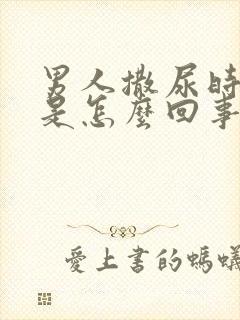 男人撒尿時
是怎麼回事
愛上書的螞蟻